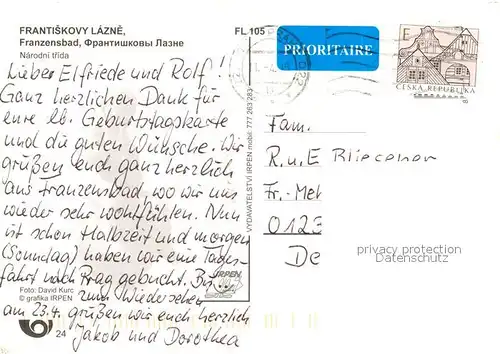 FRANTIŠKOVY LÁZNĚ,
Franzensbad, Франтишковы Лазне
Národní třída
FL 105
PRIORITAIRE
E
ČESKÁ REPUBLIKA
Lieber Elfriede und Rolf!
Ganz herzlichen Dank für
eure lb. Geburtstagskarte
und die guten Wünsche. Wir
grüßen euch ganz herzlich
aus Franzensbad, wo wir uns
wieder sehr wohlfühlen. Nun
ist schon Halbzeit und morgen
(Sonntag) haben wir eine Tages-
fahrt nach Prag gebucht. Bis
zum Wiedersehen
am 23.4. grüßen wir euch herzlich
Jakob und Dorothea
Foto: David Kurc
© grafika IRPEN
24
VYDAVATELSTVÍ IRPEN mobil: 777 263 283
IRPEN
Fam.
R. u E
Fr.-Meh
0123
De
privacy protection
Datenschutz